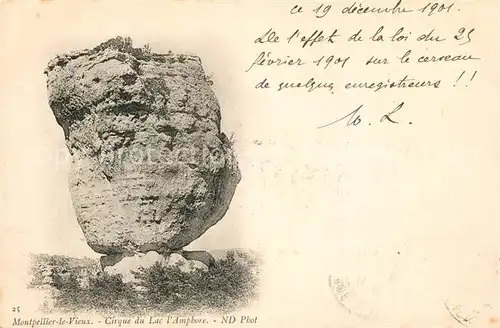 ce 19 décembre 1901.
De l'effet de la loi du 25
février 1901 sur le cerveau
de quelques enregistreurs !!
25
Montpellier-le-Vieux. - Cirque du Lac l'Amphore. - ND Phot